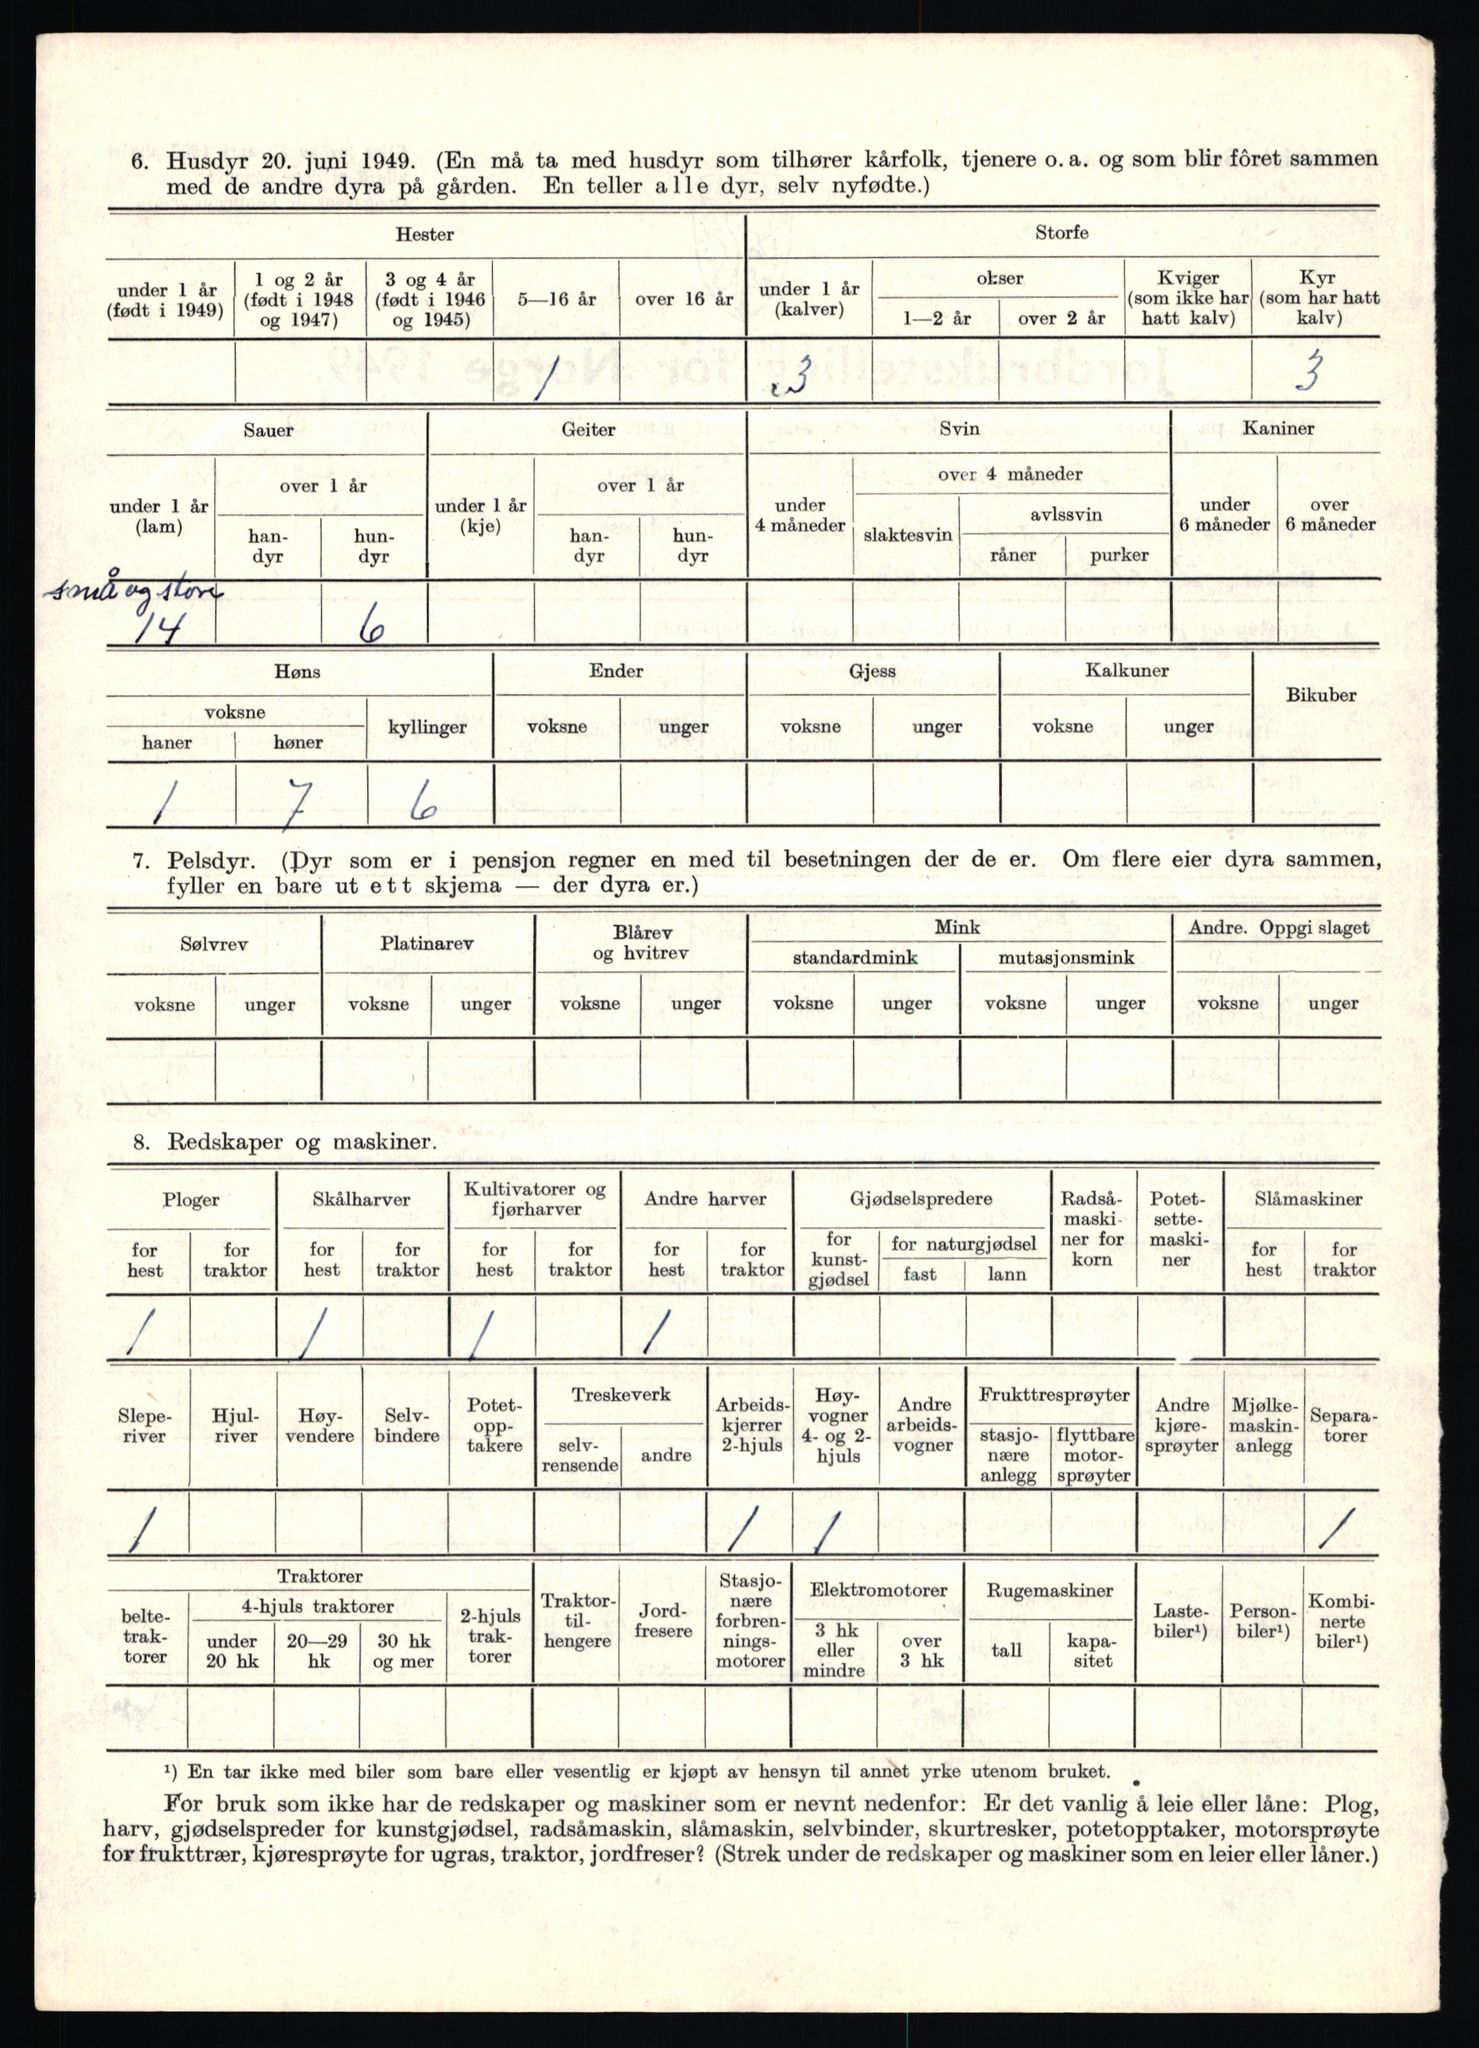 6. Husdyr 20. juni 1949. (En må ta med husdyr som tilhører kårfolk, tjenere o. a. og som blir fôret sammen
med de andre dyra på gården. En teller alle dyr, selv nyfødte.)
Hester Storfe
under 1 år (født i 1949) 1 og 2 år (født i 1948 og 1947) 3 og 4 år (født i 1946 og 1945) 5—16 år over 16 år under 1 år (kalver) okser 1—2 år over 2 år Kviger (som ikke har hatt kalv) Kyr (som har hatt kalv)
1 3 3
Sauer Geiter Svin Kaniner
under 1 år (lam) over 1 år han-dyr hun-dyr under 1 år (kje) over 1 år han-dyr hun-dyr under 4 måneder over 4 måneder slaktesvin avlssvin råner purker under 6 måneder over 6 måneder
små og store
14 6
Høns Ender Gjess Kalkuner Bikuber
voksne haner høner kyllinger voksne unger voksne unger voksne unger
1 7 6
7. Pelsdyr. (Dyr som er i pensjon regner en med til besetningen der de er. Om flere eier dyra sammen,
fyller en bare ut ett skjema — der dyra er.)
Sølvrev Platinarev Blårev og hvitrev Mink Andre. Oppgi slaget
standardmink mutasjonsmink
voksne unger voksne unger voksne unger voksne unger voksne unger voksne unger
8. Redskaper og maskiner.
Ploger Skålharver Kultivatorer og fjørharver Andre harver Gjødselspredere Radså-maski-ner for korn Potet-sette-maski-ner Slåmaskiner
for hest for traktor for hest for traktor for hest for traktor for hest for traktor for kunst-gjødsel for naturgjødsel fast lann for hest for traktor
1 1 1 1
Slepe-river Hjul-river Høy-vendere Selv-bindere Potet-opp-takere Treskeverk selv-rensende andre Arbeids-kjerrer 2-hjuls Høy-vogner 4- og 2-hjuls Andre arbeids-vogner Frukttresprøyter stasjo-nære anlegg flyttbare motor-sprøyter Andre kjøre-sprøyter Mjølke-maskin-anlegg Separa-torer
1 1 1 1
Traktorer Traktor-til-hengere Jord-fresere Stasjo-nære forbren-nings-motorer Elektromotorer Rugemaskiner Laste-biler¹) Person-biler¹) Kombi-nerte biler¹)
belte-trak-torer 4-hjuls traktorer under 20 hk 20—29 hk 30 hk og mer 2-hjuls trak-torer 3 hk eller mindre over 3 hk tall kapa-sitet
¹) En tar ikke med biler som bare eller vesentlig er kjøpt av hensyn til annet yrke utenom bruket.
For bruk som ikke har de redskaper og maskiner som er nevnt nedenfor: Er det vanlig å leie eller låne: Plog,
harv, gjødselspreder for kunstgjødsel, radsåmaskin, slåmaskin, selvbinder, skurtresker, potetopptaker, motorsprøyte
for frukttrær, kjøresprøyte for ugras, traktor, jordfreser? (Strek under de redskaper og maskiner som en leier eller låner.)